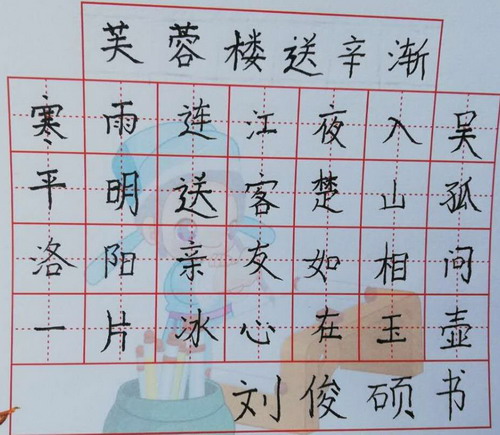 芙蓉楼送辛渐
寒雨连江夜入吴
平明送客楚山孤
洛阳亲友如相问
一片冰心在玉壶
刘俊硕书